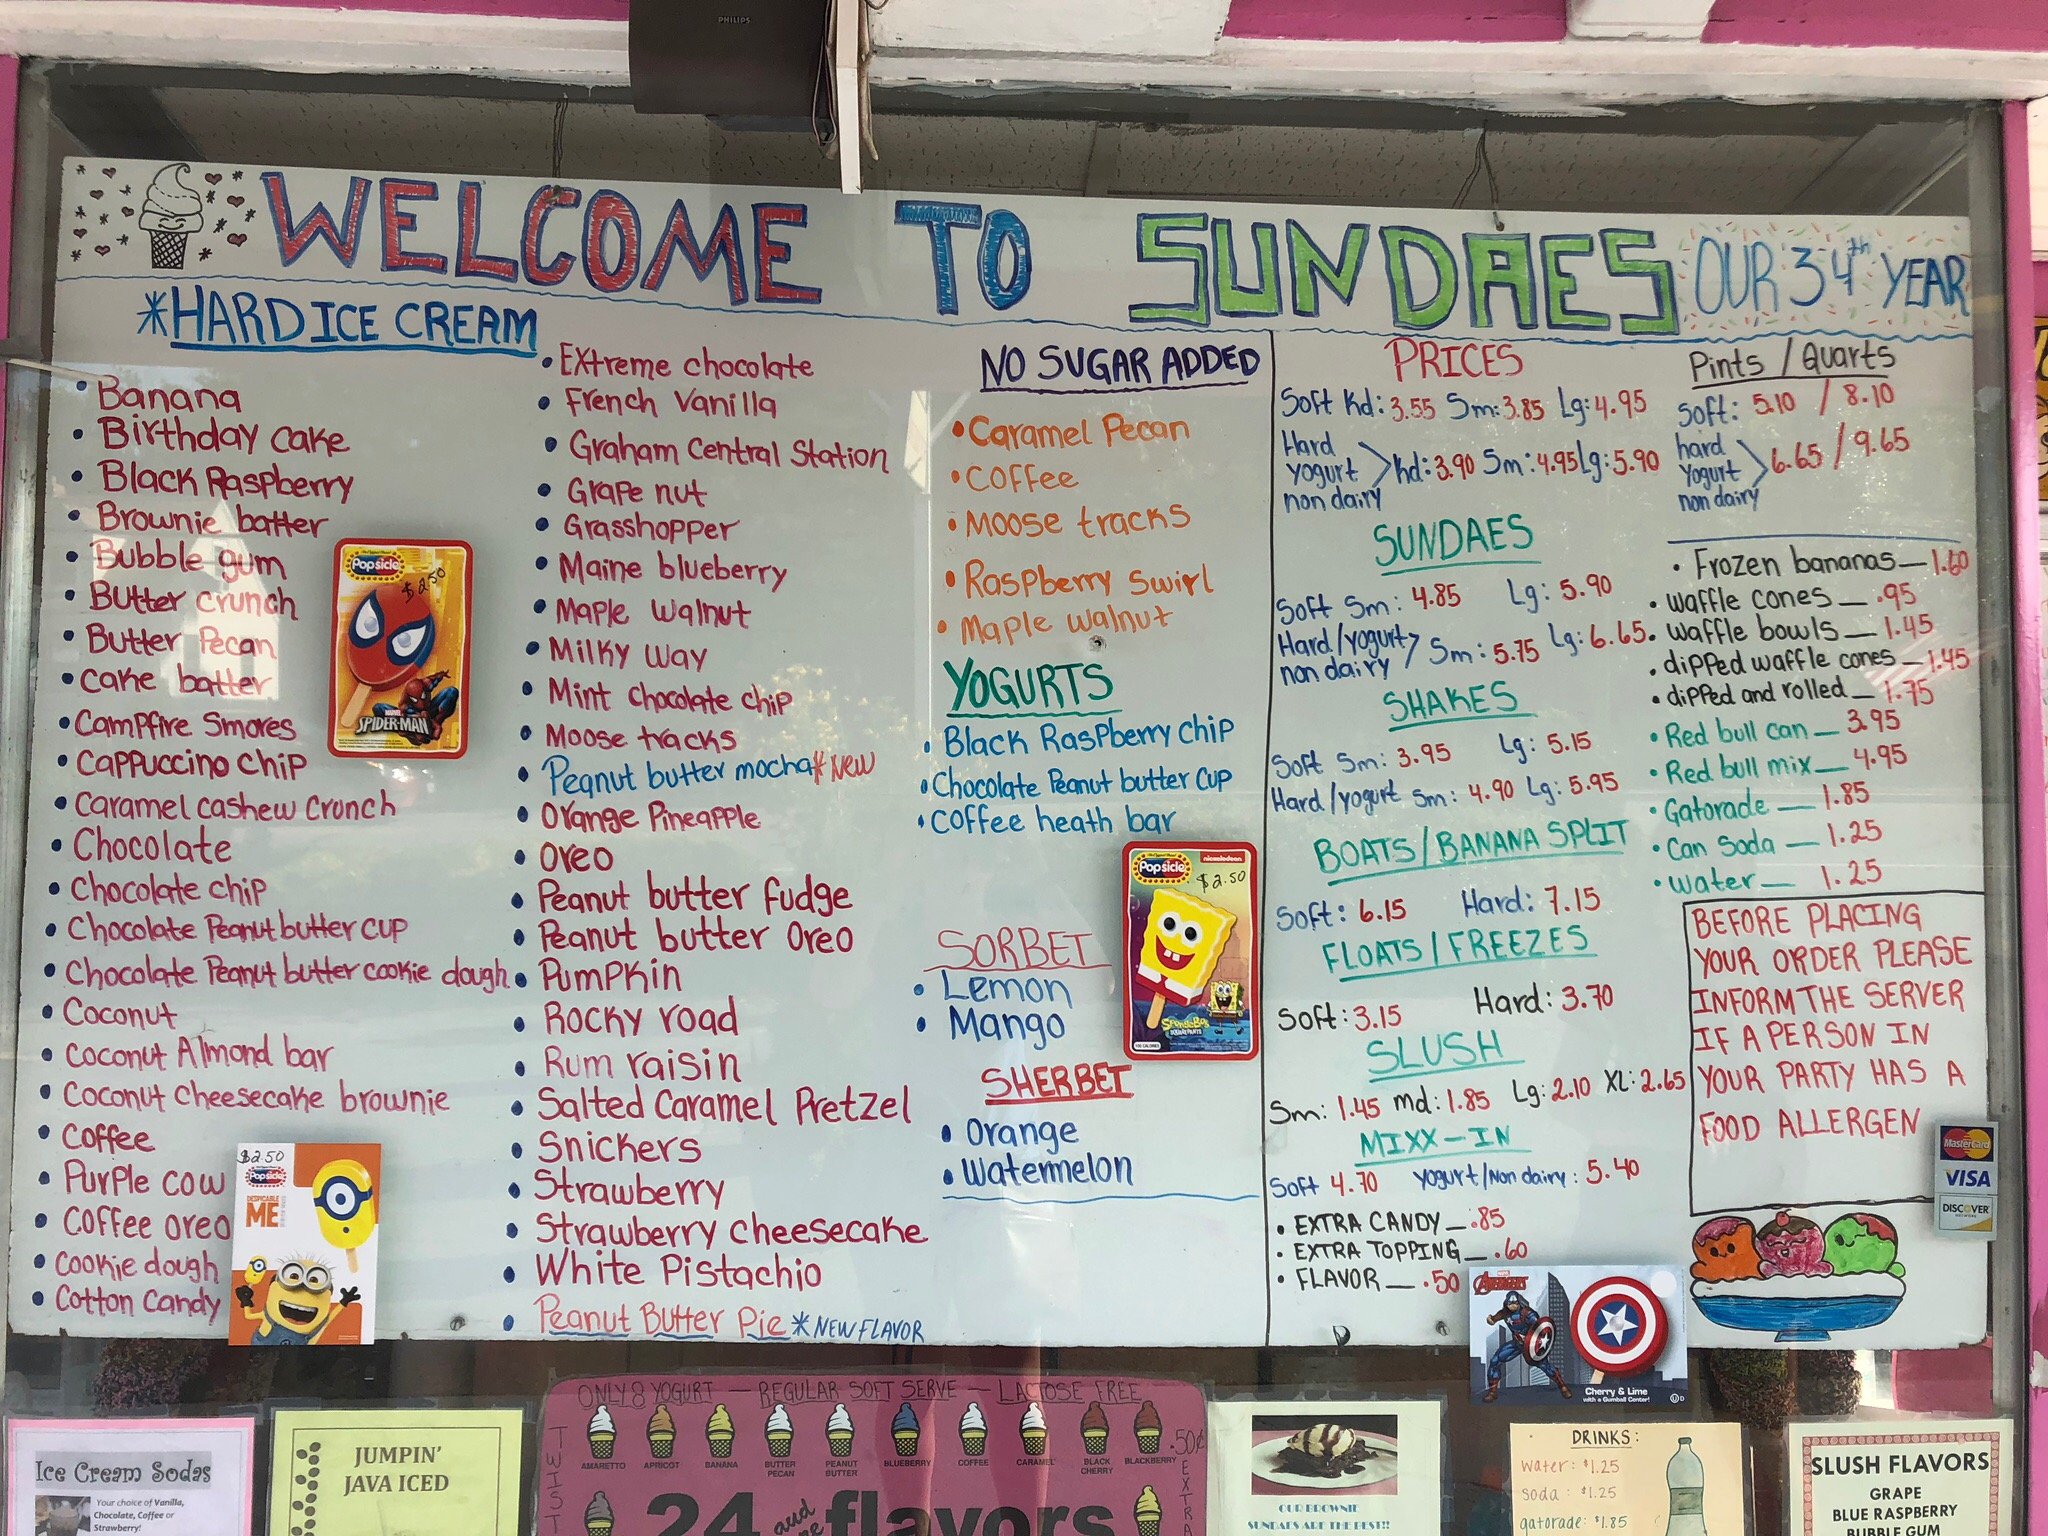 PHILIPS
WELCOME TO SUNDAES
OUR 34th YEAR
*HARD ICE CREAM
• Banana
• Birthday cake
• Black Raspberry
• Brownie batter
• Bubble gum
• Butter crunch
• Butter Pecan
• Cake batter
• Campfire Smores
• Cappuccino chip
• Caramel cashew crunch
• Chocolate
• Chocolate chip
• Chocolate Peanut butter cup
• Chocolate Peanut butter cookie dough
• Coconut
• Coconut Almond bar
• Coconut cheesecake brownie
• Coffee
• Purple cow
• Coffee oreo
• Cookie dough
• Cotton Candy
• Extreme chocolate
• French Vanilla
• Graham Central Station
• Grape nut
• Grasshopper
• Maine blueberry
• Maple Walnut
• Milky way
• Mint chocolate chip
• Moose tracks
• Peanut butter mocha* NEW
• Orange Pineapple
• Oreo
• Peanut butter fudge
• Peanut butter Oreo
• Pumpkin
• Rocky road
• Rum raisin
• Salted Caramel Pretzel
• Snickers
• Strawberry
• Strawberry cheesecake
• White Pistachio
• Peanut Butter Pie *NEW FLAVOR
Popsicle
$2.50
MARVEL
SPIDER-MAN
$2.50
Popsicle
DESPICABLE
ME
NO SUGAR ADDED
• Caramel Pecan
• Coffee
• Moose tracks
• Raspberry Swirl
• Maple walnut
YOGURTS
• Black Raspberry chip
• Chocolate Peanut butter cup
• Coffee heath bar
SORBET
• Lemon
• Mango
SHERBET
• Orange
• Watermelon
nickelodeon
Popsicle
$2.50
SpongeBob
SQUAREPANTS
PRICES
Soft Kd: 3.55 Sm: 3.85 Lg: 4.95
Hard
yogurt > Kd: 3.90 Sm: 4.95 Lg: 5.90
non dairy
SUNDAES
Soft Sm: 4.85 Lg: 5.90
Hard/yogurt > Sm: 5.75 Lg: 6.65
non dairy
SHAKES
Soft Sm: 3.95 Lg: 5.15
Hard/yogurt Sm: 4.90 Lg: 5.95
BOATS/BANANA SPLIT
Soft: 6.15 Hard: 7.15
FLOATS/FREEZES
Soft: 3.15 Hard: 3.70
SLUSH
Sm: 1.45 md: 1.85 Lg: 2.10 XL: 2.65
MIXX-IN
Soft 4.70 yogurt/Non dairy: 5.40
• EXTRA CANDY - .85
• EXTRA TOPPING - .60
• FLAVOR - .50
Pints / Quarts
Soft: 5.10 / 8.10
hard
yogurt > 6.65 / 9.65
non dairy
• Frozen bananas - 1.60
• waffle cones - .95
• waffle bowls - 1.45
• dipped waffle cones - 1.45
• dipped and rolled - 1.75
• Red bull can - 3.95
• Red bull mix - 4.95
• Gatorade - 1.85
• Can Soda - 1.25
• Water - 1.25
BEFORE PLACING
YOUR ORDER PLEASE
INFORM THE SERVER
IF A PERSON IN
YOUR PARTY HAS A
FOOD ALLERGEN
MasterCard
VISA
DISCOVER
AVENGERS
Cherry & Lime
with a Gumball Center!
Ice Cream Sodas
Your choice of Vanilla,
Chocolate, Coffee or
Strawberry!
JUMPIN'
JAVA ICED
ONLY 8 YOGURT - REGULAR SOFT SERVE - LACTOSE FREE
TWIST
.50¢ EXTRA
AMARETTO APRICOT BANANA BUTTER PECAN PEANUT BUTTER BLUEBERRY COFFEE CARAMEL BLACK CHERRY BLACKBERRY
24 and flavors
OUR BROWNIE
SUNDAES ARE THE BEST!!
DRINKS:
water: $1.25
soda: $1.25
gatorade: $1.85
SLUSH FLAVORS
GRAPE
BLUE RASPBERRY
BUBBLE GUM